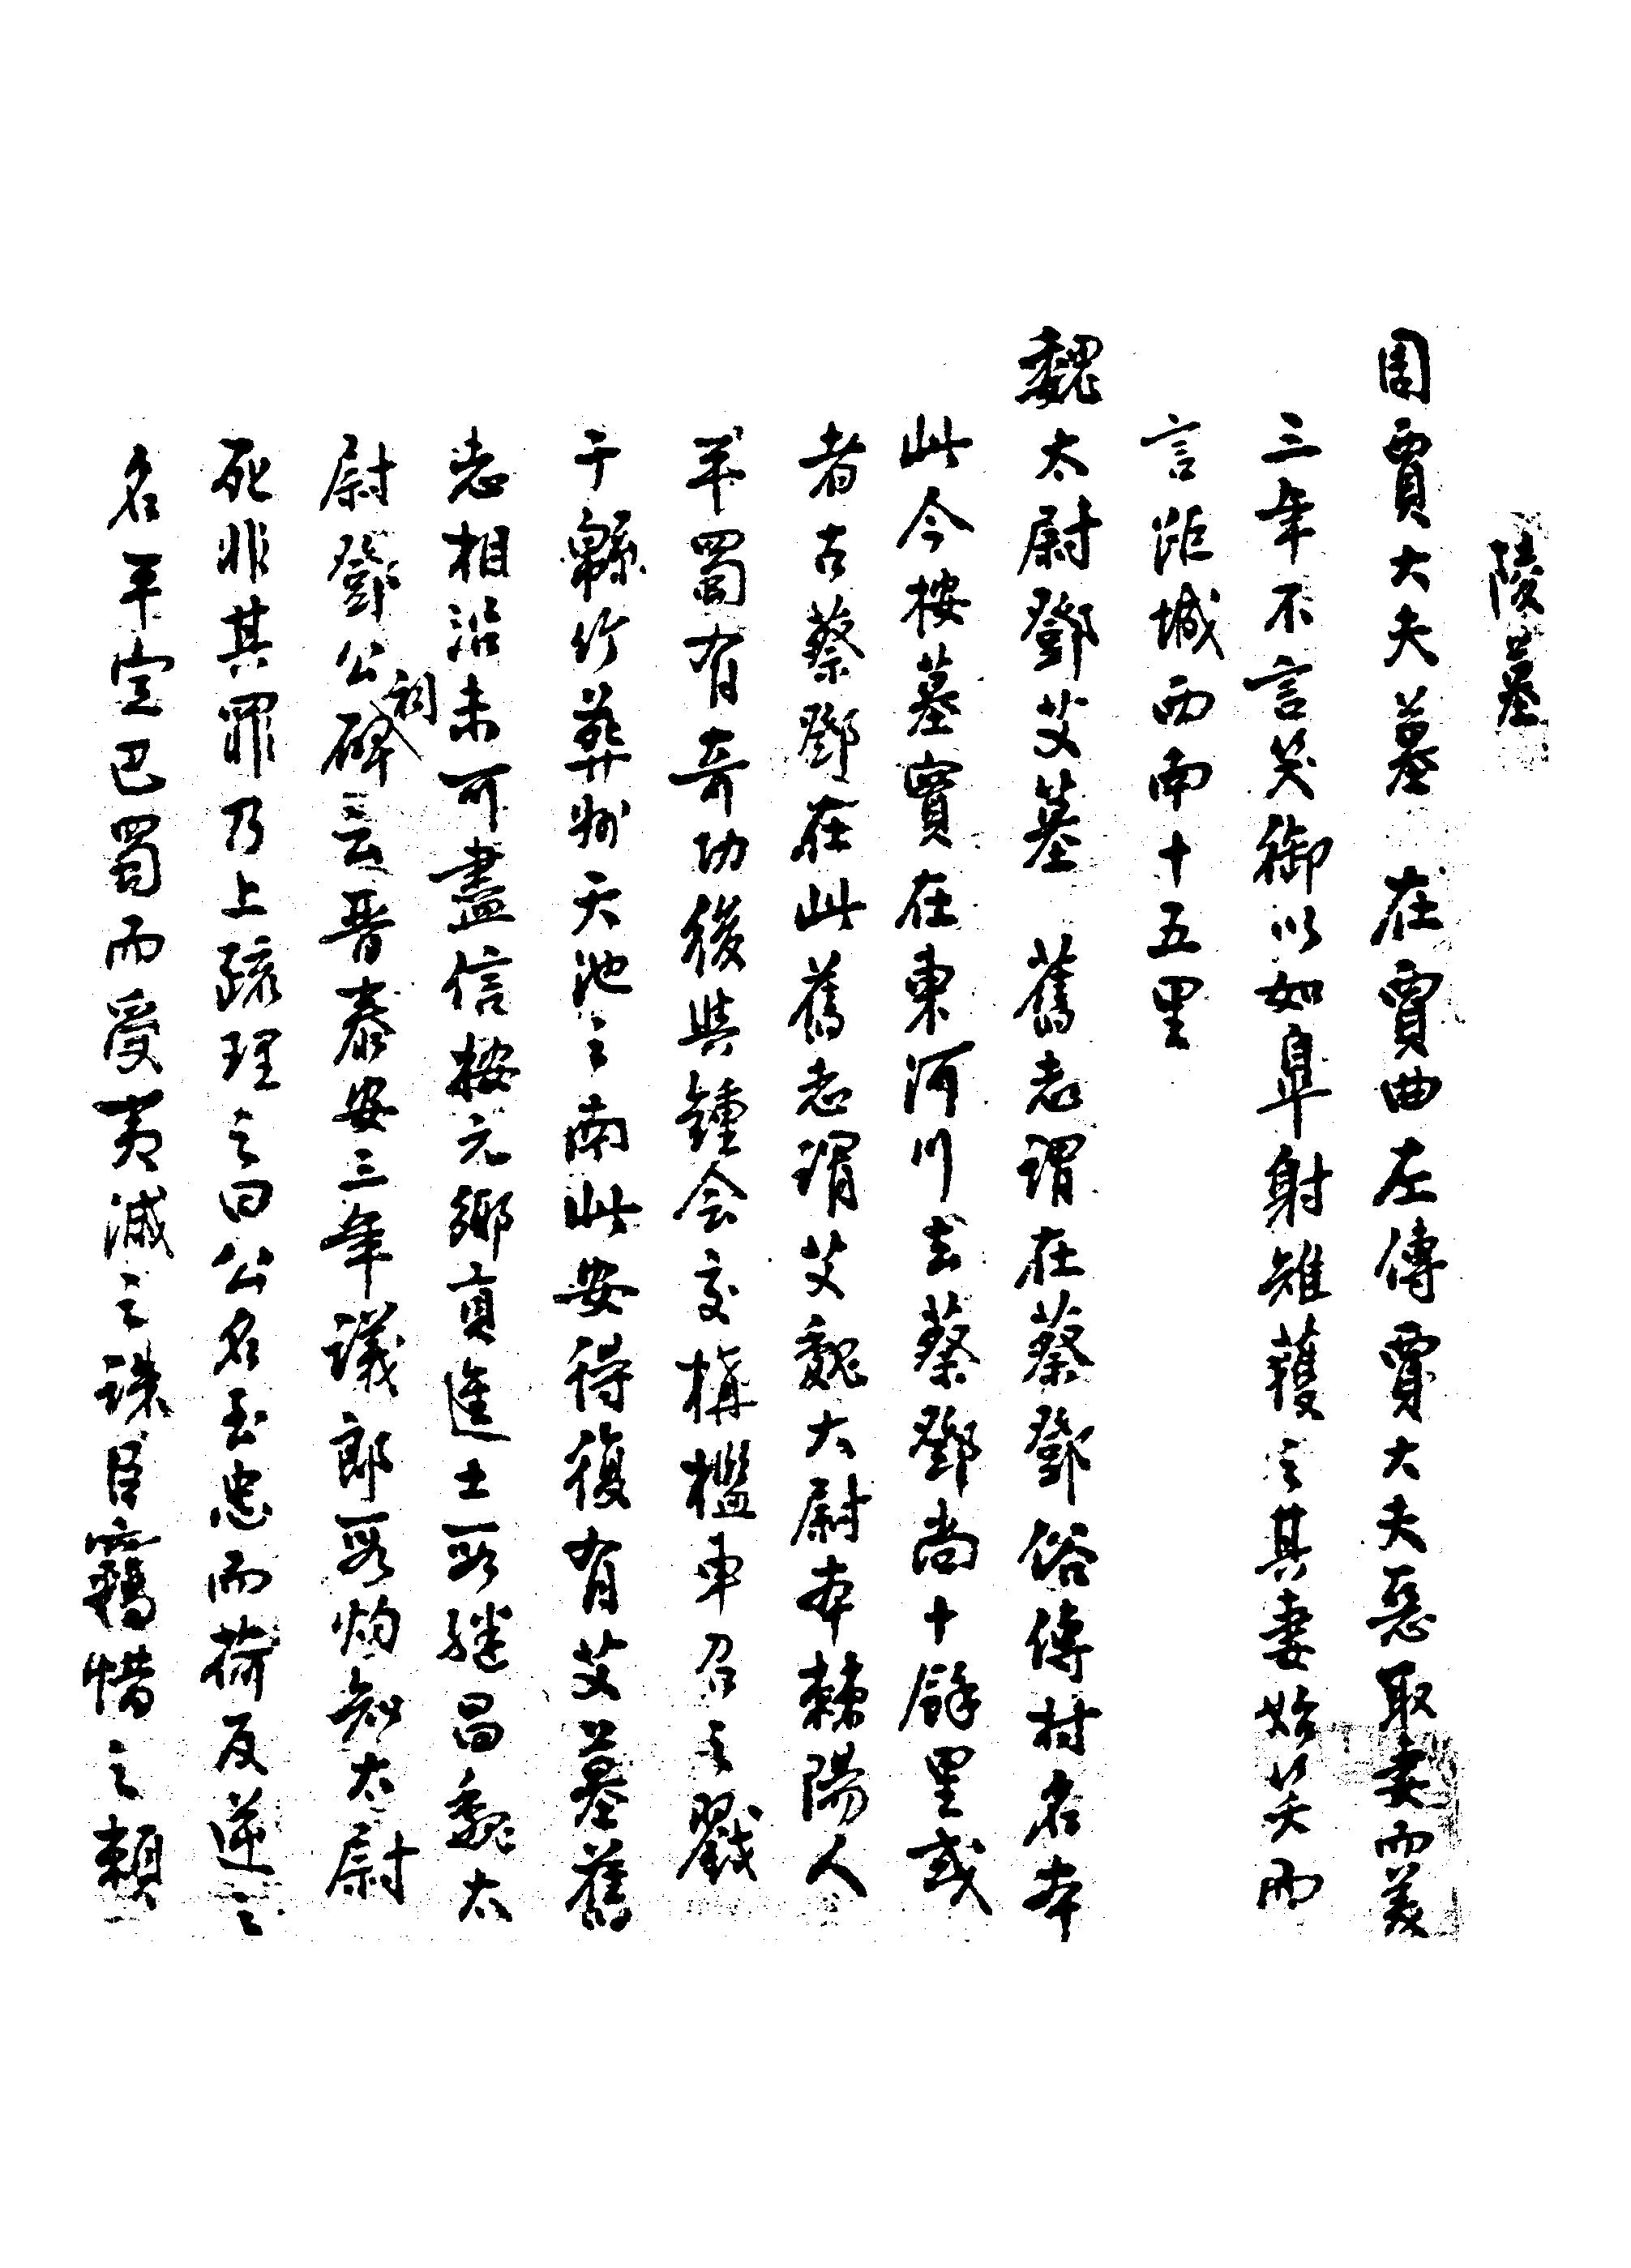 陵墓
周賈大夫墓　在賈曲左傳賈大夫惡取妻而美
三年不言笑御以如皐射雉獲之其妻始笑而
言距城西南十五里
魏太尉鄧艾墓　舊志謂在蔡鄧俗傳村名本
此今按墓實在東河川去蔡鄧尚十餘里或
者古蔡鄧在此舊志謂艾魏太尉本棘陽人
平蜀有奇功後與鍾会交構檻車召之戮
于緜竹葬州天池之南此安得復有艾墓舊
志相沿未可盡信按元鄉貢進士段継昌魏太
尉鄧公祠碑云晋泰安三年議郎段灼知太尉
死非其罪乃上疏理之曰公名至忠而荷反逆之
名平定巴蜀而受夷滅之誅臣竊惜之賴